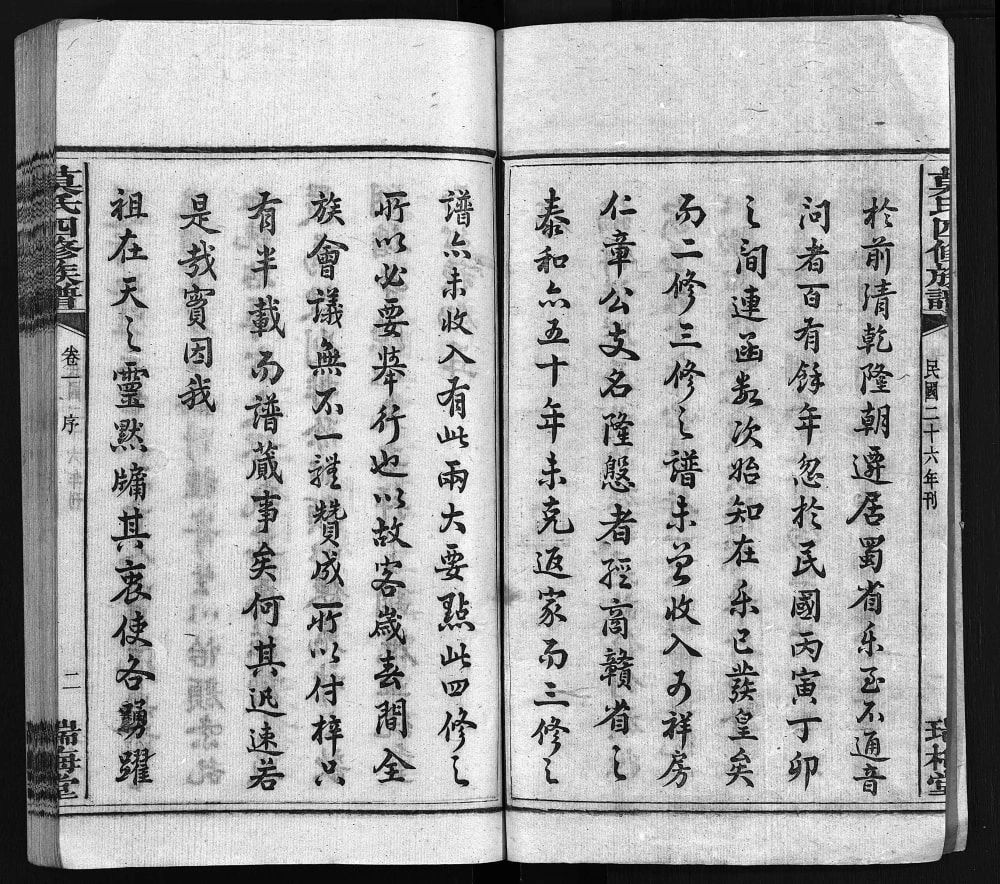 於前清乾隆朝遷居蜀省乐至不通音
問者百有餘年忽於民國丙寅丁卯
之间連函数次始知在乐已發皇矣
而二修三修之譜未曾收入可祥房
仁章公支名隆慇者經商贛省之
泰和亦五十年未克返家而三修之
民國二十六年刊
譜亦未收入有此兩大要點此四修之
所以必要舉行也以故客歲去間全
族會議無不一體贊成所以付梓只
有半載而譜蕆事矣何其迅速若
是哉實因我
祖在天之靈默牖其衷使各踴躍
莫氏四修族譜
卷一
序
二